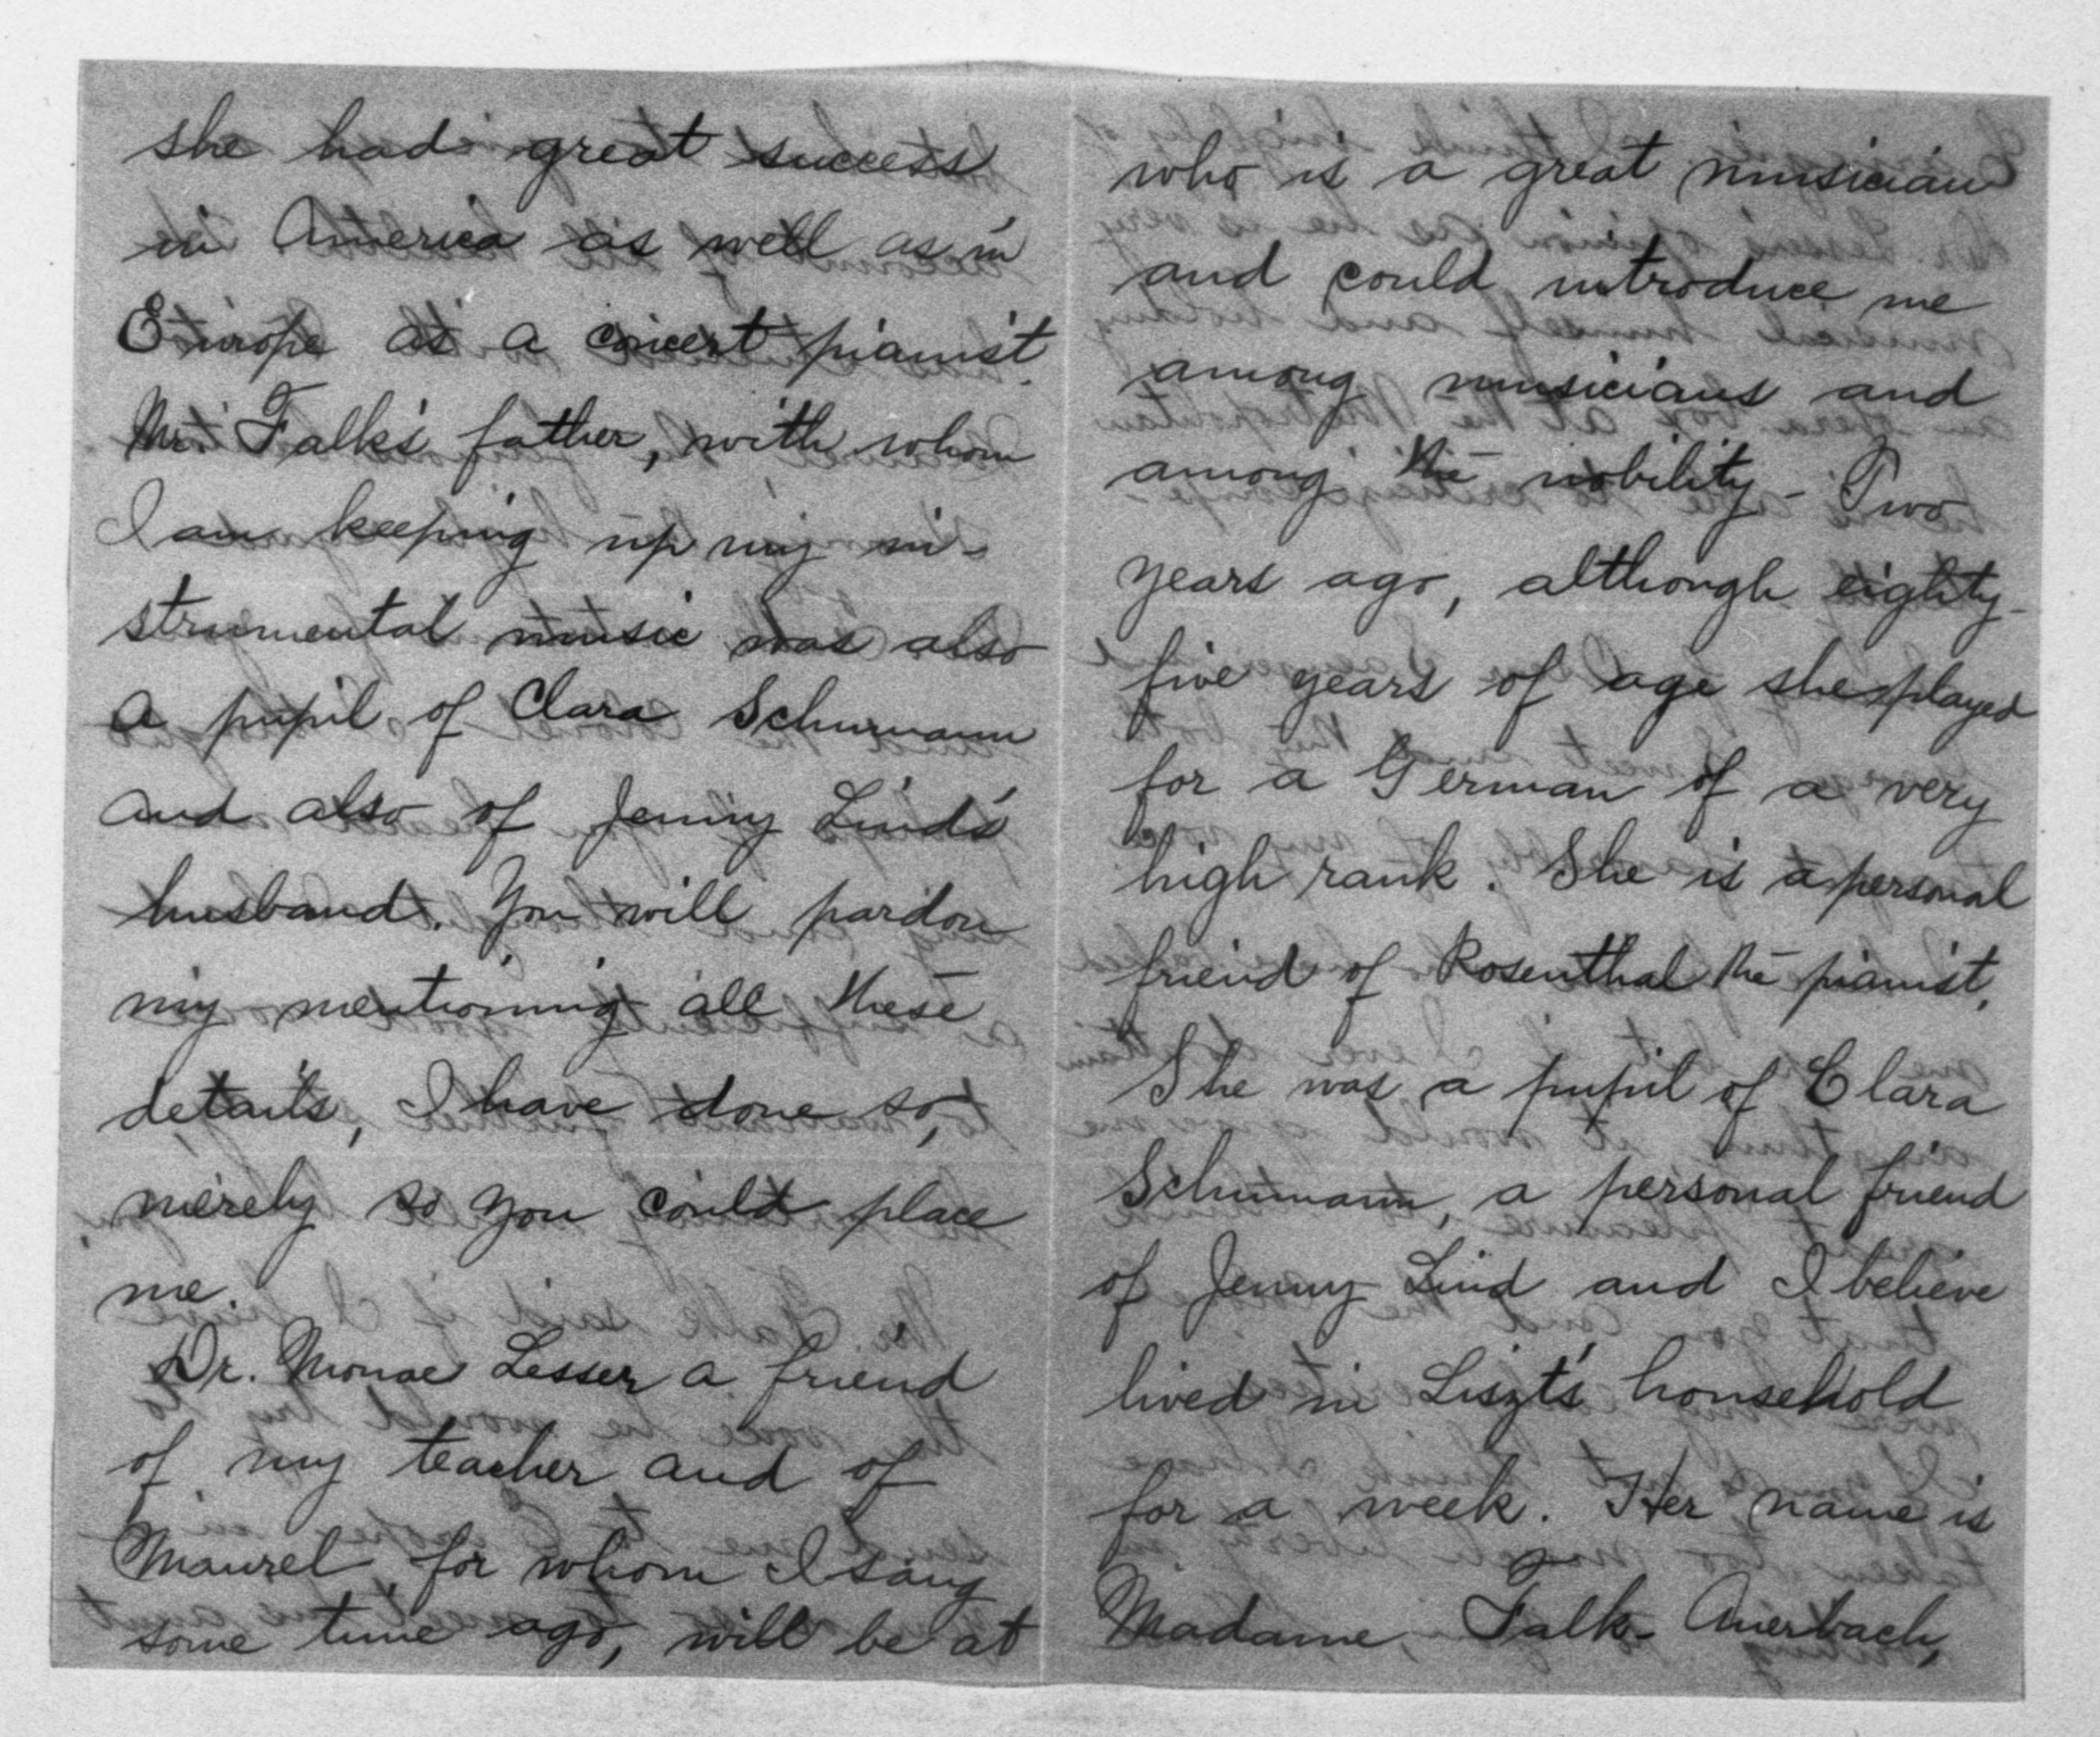 she had great success
in America as well as in
Europe as a concert pianist.
Mr. Falk's father, with whom
I am keeping up my in-
strumental music was also
a pupil of Clara Schumann
and also of Jenny Lind's
husband. You will pardon
my mentioning all these
details, I have done so,
merely so you could place
me.
Dr. Monae Lesser a friend
of my teacher and of
Maurel, for whom I sang
some time ago, will be at
who is a great musician
and could introduce me
among musicians and
among the nobility - Two
years ago, although eighty-
five years of age she played
for a German of a very
high rank. She is a personal
friend of Rosenthal the pianist.
She was a pupil of Clara
Schumann, a personal friend
of Jenny Lind and I believe
lived in Liszt's household
for a week. Her name is
Madame Falk-Auerbach,